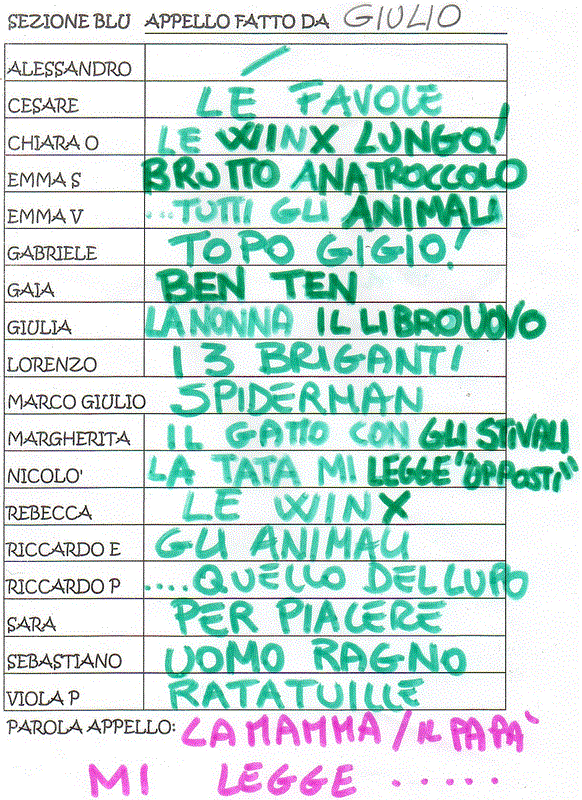 SEZIONE BLU APPELLO FATTO DA GIULIO
ALESSANDRO /
CESARE LE FAVOLE
CHIARA O LE WINX LUNGO!
EMMA S BRUTTO ANATROCCOLO
EMMA V ...TUTTI GLI ANIMALI
GABRIELE TOPO GIGIO!
GAIA BEN TEN
GIULIA LA NONNA IL LIBRO UOVO
LORENZO I 3 BRIGANTI
MARCO GIULIO SPIDERMAN
MARGHERITA IL GATTO CON GLI STIVALI
NICOLO' LA TATA MI LEGGE "OPPOSTI"
REBECCA LE WINX
RICCARDO E GLI ANIMALI
RICCARDO P ....QUELLO DEL LUPO
SARA PER PIACERE
SEBASTIANO UOMO RAGNO
VIOLA P RATATUILLE
PAROLA APPELLO: LA MAMMA / IL PAPA'
MI LEGGE .....